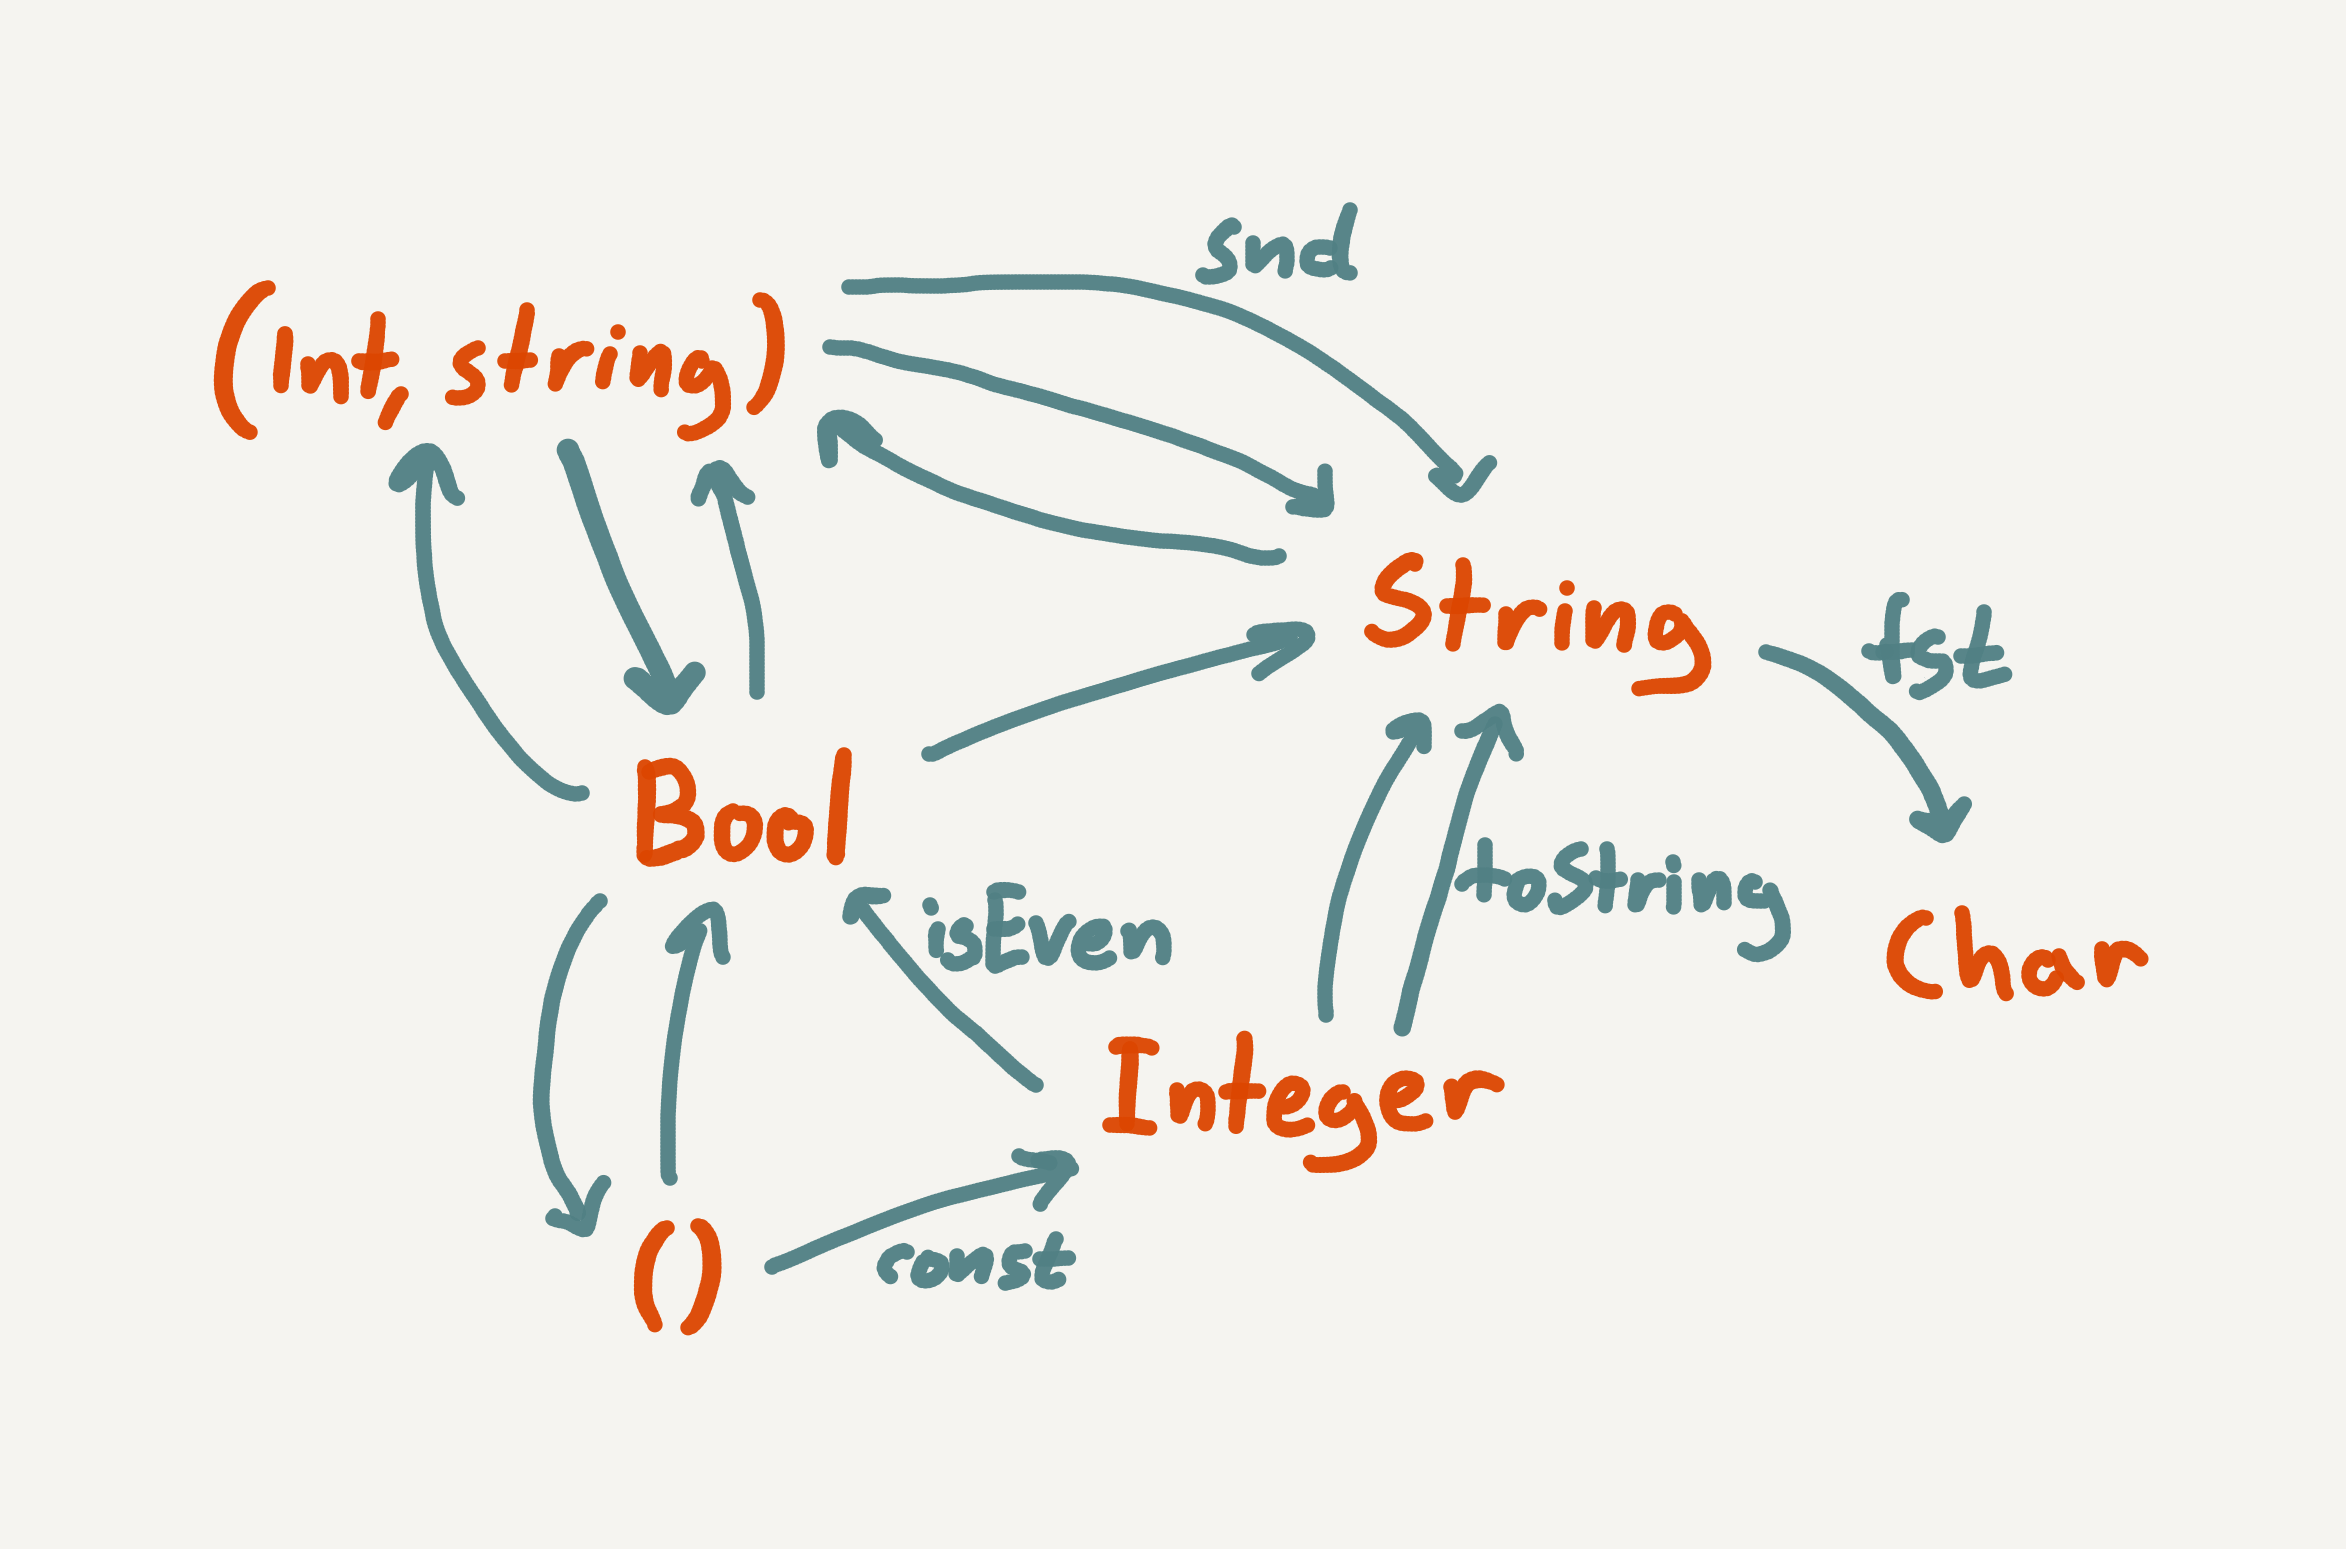 snd
(Int, string)
String
fst
Bool
toString
isEven
Char
Integer
const
()